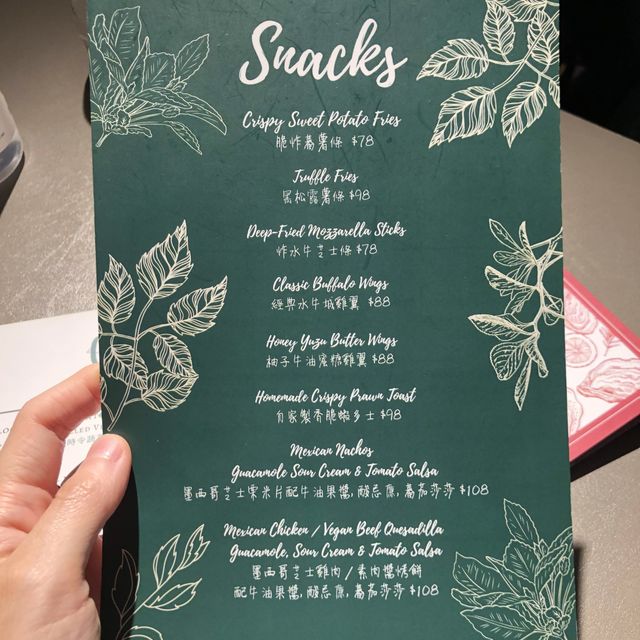 Snacks
Crispy Sweet Potato Fries
脆炸蕃薯條 $78
Truffle Fries
黑松露薯條 $98
Deep-Fried Mozzarella Sticks
炸水牛芝士條 $78
Classic Buffalo Wings
經典水牛城雞翼 $88
Honey Yuzu Butter Wings
柚子牛油蜜糖雞翼 $88
Homemade Crispy Prawn Toast
自家製香脆蝦多士 $98
Mexican Nachos
Guacamole Sour Cream & Tomato Salsa
墨西哥芝士粟米片配牛油果醬, 酸忌廉, 蕃茄莎莎 $108
Mexican Chicken / Vegan Beef Quesadilla
Guacamole, Sour Cream & Tomato Salsa
墨西哥芝士雞肉 / 素肉醬烤餅
配牛油果醬, 酸忌廉, 蕃茄莎莎 $108